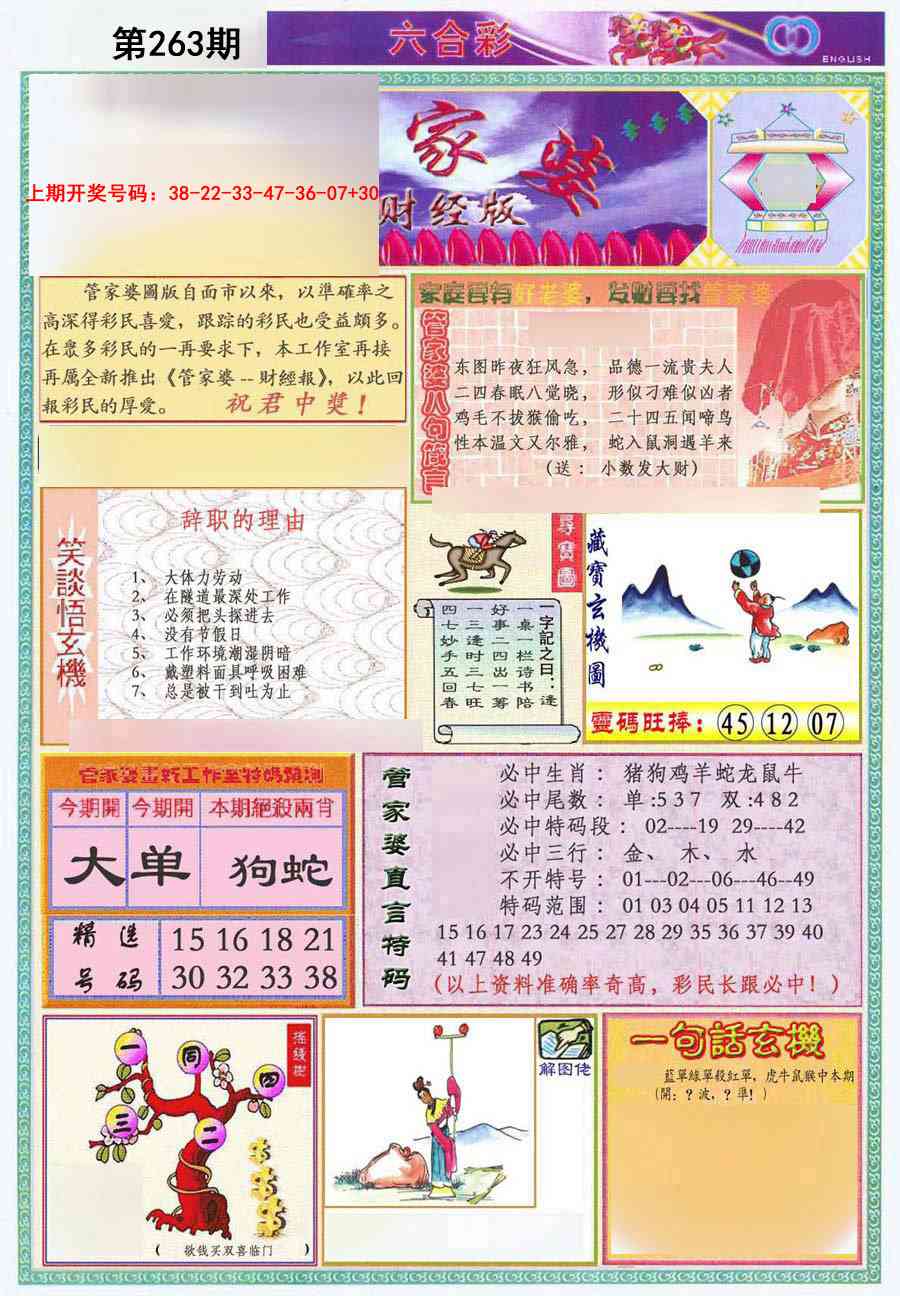 第263期
六合彩
ENGLISH
上期开奖号码：38-22-33-47-36-07+30
家婆
财经版
管家婆圖版自面市以來，以準確率之
高深得彩民喜愛，跟踪的彩民也受益頗多。
在眾多彩民的一再要求下，本工作室再接
再厲全新推出《管家婆--財經報》，以此回
報彩民的厚愛。 祝君中獎！
家庭要有好老婆，发财要找管家婆
管家婆八句箴言
东图昨夜狂风急， 品德一流贵夫人
二四春眠八觉晓， 形似刁难似凶者
鸡毛不拔猴偷吃， 二十四五闻啼鸟
性本温文又尔雅， 蛇入鼠洞遇羊来
（送：小数发大财）
笑談悟玄機
辞职的理由
1、 大体力劳动
2、 在隧道最深处工作
3、 必须把头探进去
4、 没有节假日
5、 工作环境潮湿阴暗
6、 戴塑料面具呼吸困难
7、 总是被干到吐为止
尋寶圖
一字記之曰：逢
一桌一栏诗书陪
好事二四出一筹
一三逢时三七旺
四七妙手五回春
藏寶玄機圖
靈碼旺捧：45 12 07
管家婆畫姸工作室特碼預測
今期開 今期開 本期絕殺兩肖
大 单 狗蛇
精选号码
15 16 18 21
30 32 33 38
管家婆直言特码
必中生肖：猪狗鸡羊蛇龙鼠牛
必中尾数：单:5 3 7 双:4 8 2
必中特码段：02----19 29----42
必中三行：金、 木、 水
不开特号：01---02---06---46--49
特码范围：01 03 04 05 11 12 13
15 16 17 23 24 25 27 28 29 35 36 37 39 40
41 47 48 49
（以上资料准确率奇高，彩民长跟必中！）
摇錢樹
一
同
四
三
二
（ 散钱买双喜临门 ）
解图佬
一句話玄機
藍單綠單殺紅單，虎牛鼠猴中本期
（開：？波，？準！）